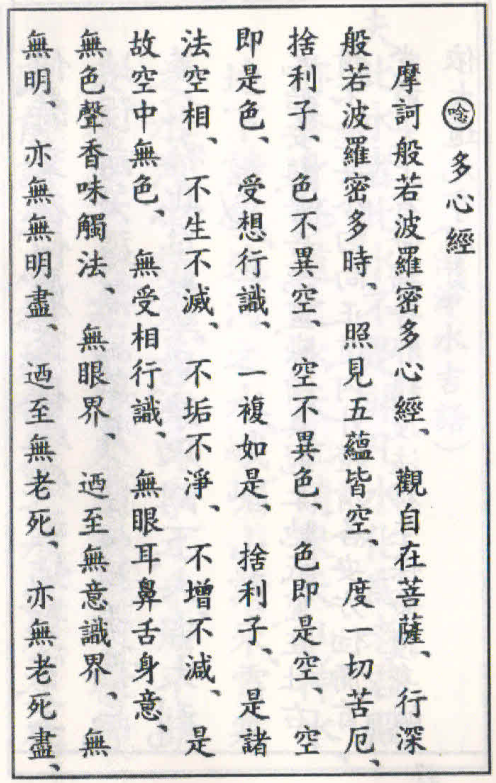 唸 多心經
摩訶般若波羅密多心經、觀自在菩薩、行深
般若波羅密多時、照見五蘊皆空、度一切苦厄、
捨利子、色不異空、空不異色、色即是空、空
即是色、受想行識、一複如是、捨利子、是諸
法空相、不生不滅、不垢不淨、不增不滅、是
故空中無色、無受相行識、無眼耳鼻舌身意、
無色聲香味觸法、無眼界、迺至無意識界、無
無明、亦無無明盡、迺至無老死、亦無老死盡、